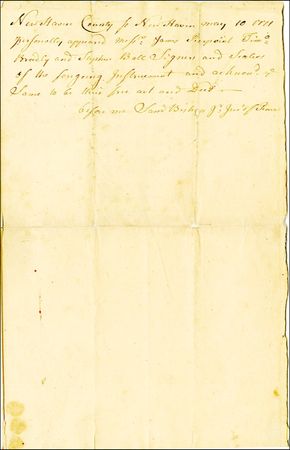 New Haven County ss New Haven May 10 1781
Personally appeared mess.rs James Tim.o
and Stephen Ball Signers and Sealers
of the foregoing Instrument and acknow.d ye
Same to be their free act and Deed —
before me Sam.l Bishop J.r Just of Peace